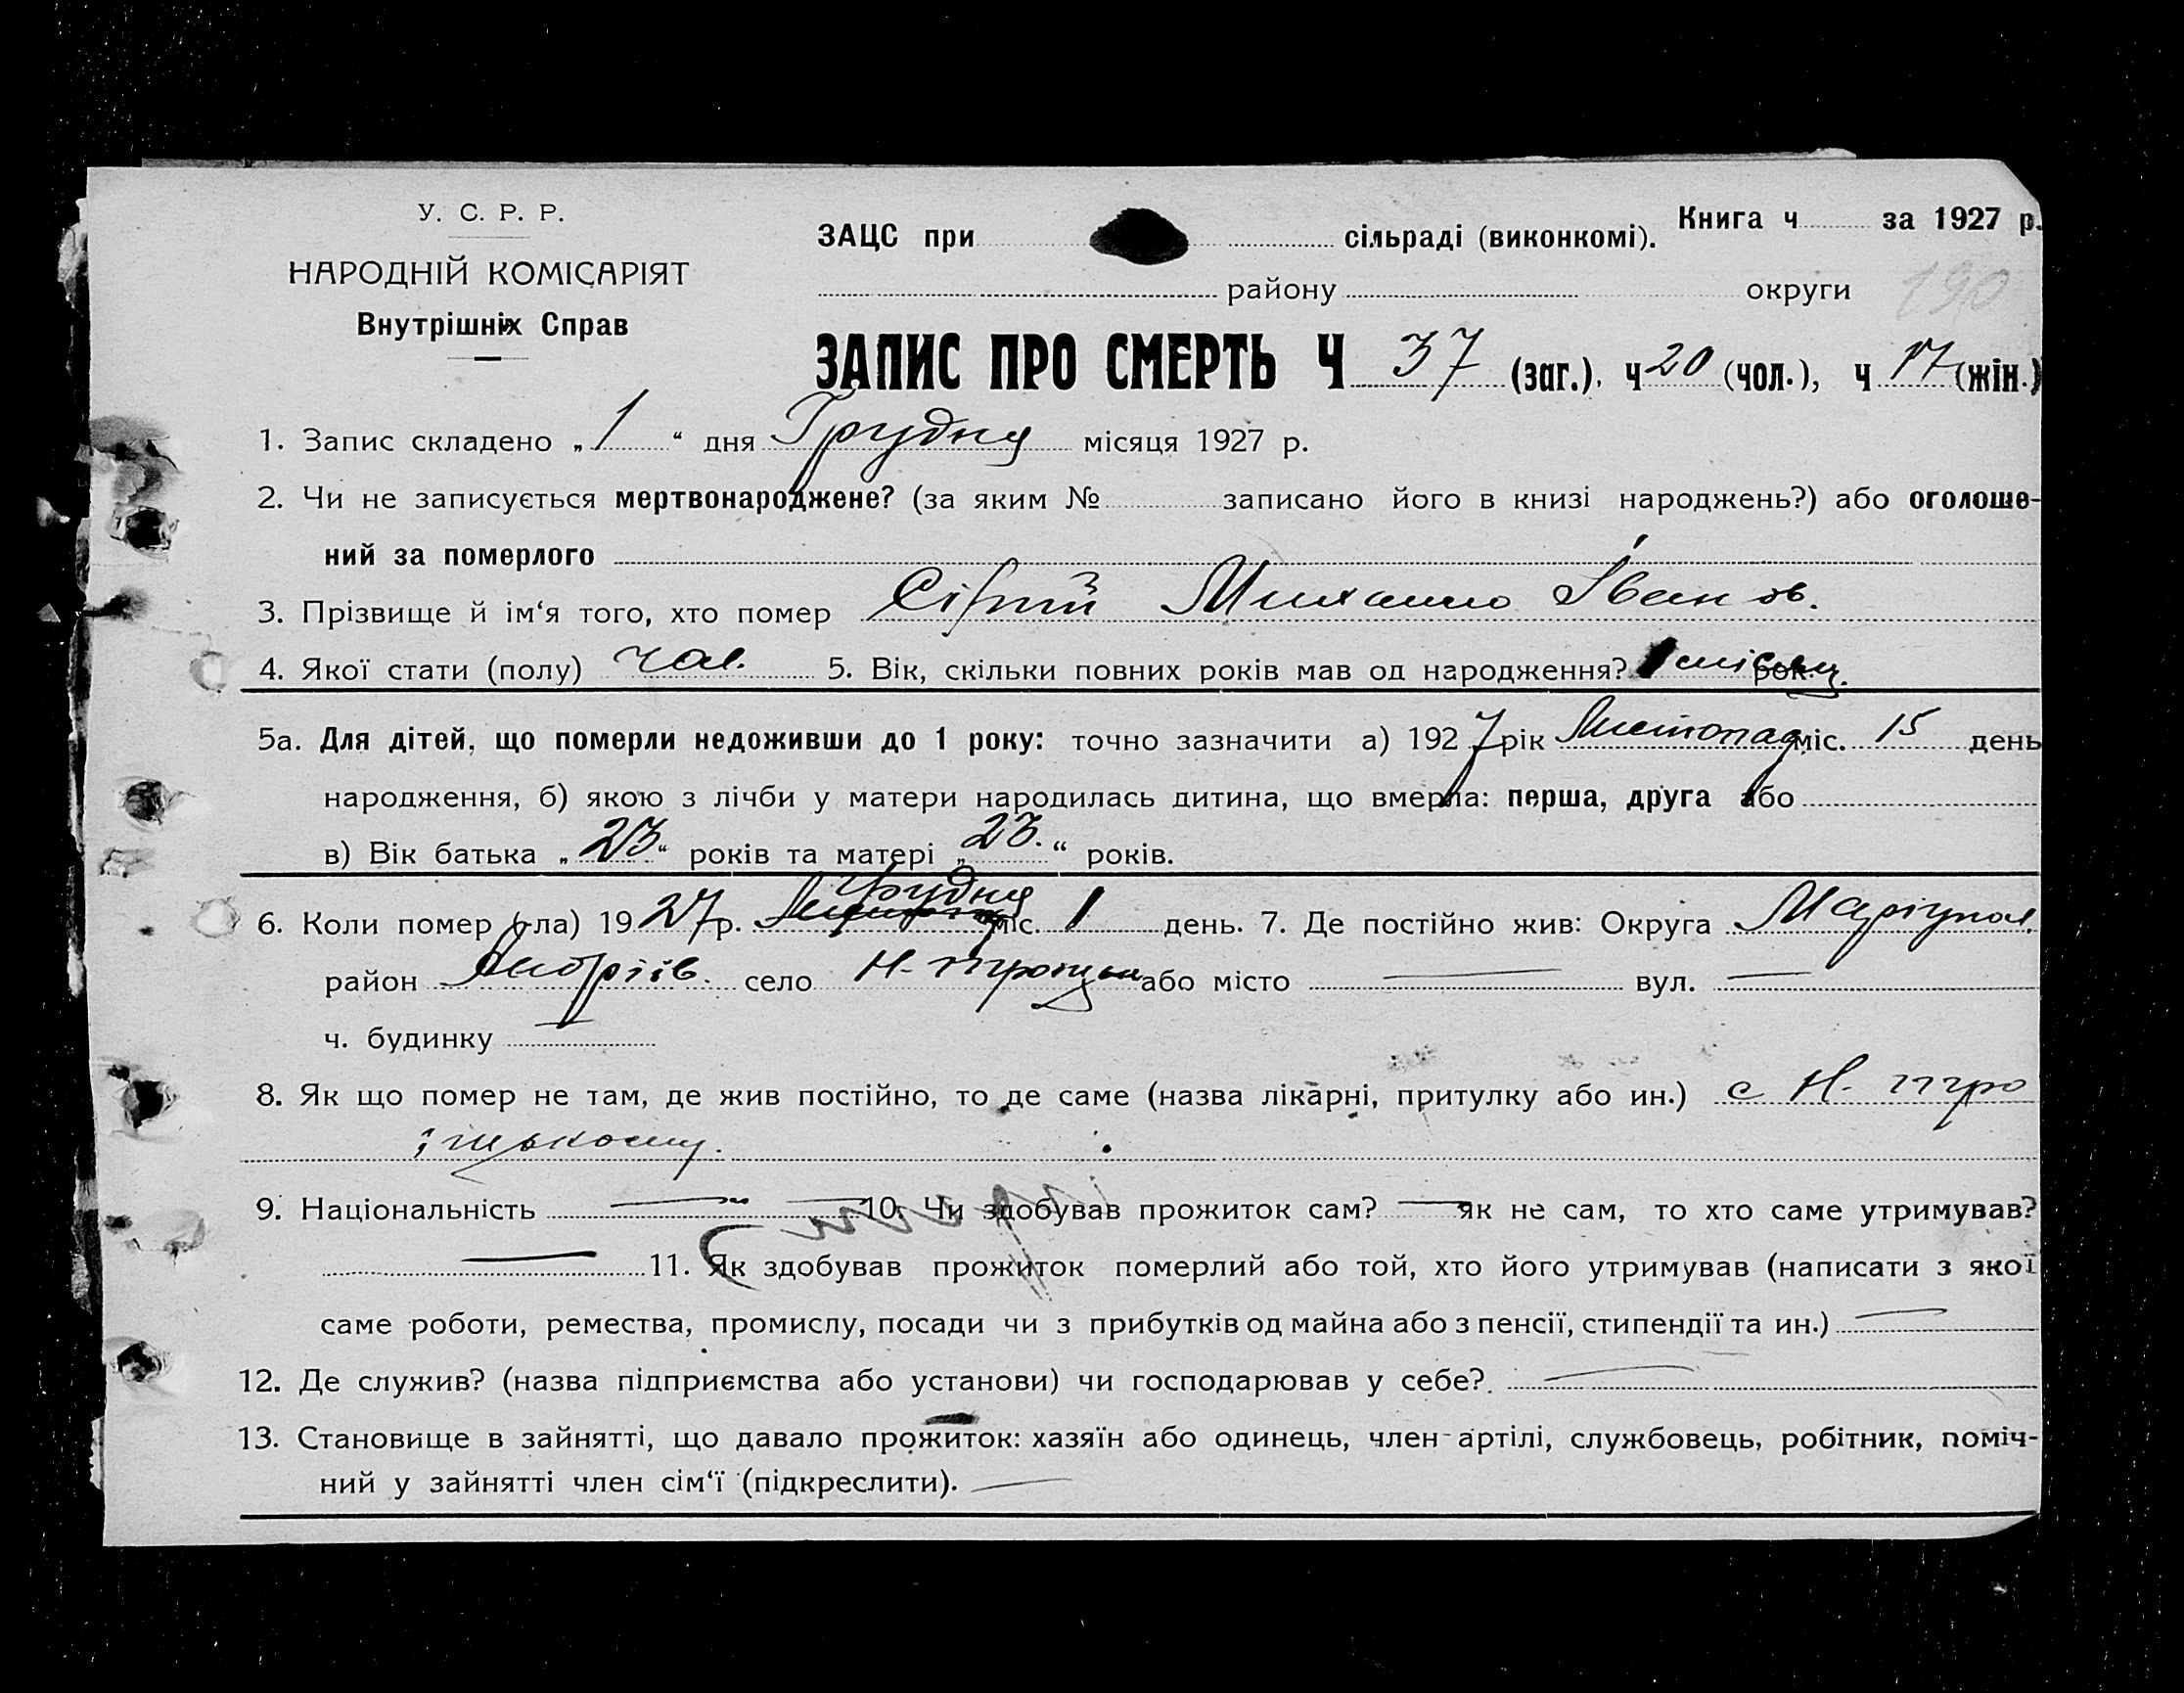 У. С. Р. Р.
НАРОДНІЙ КОМІСАРІЯТ
Внутрішніх Справ
ЗАЦС при сільраді (виконкомі). Книга ч за 1927 р.
району округи 190
ЗАПИС ПРО СМЕРТЬ Ч 37 (заг.), ч 20 (чол.), ч 17 (жін.)
1. Запис складено „1“ дня Грудня місяця 1927 р.
2. Чи не записується мертвонароджене? (за яким № записано його в книзі народжень?) або оголоше-
ний за померлого
3. Прізвище й ім‘я того, хто помер Михайло Іванов.
4. Якої стати (полу) чол. 5. Вік, скільки повних років мав од народження? 1 місяц. рок.
5а. Для дітей, що померли недоживши до 1 року: точно зазначити а) 1927 рік Листопад міс. 15 день
народження, б) якою з лічби у матери народилась дитина, що вмерла: перша, друга або
в) Вік батька „23“ років та матері „23.“ років.
Грудня
6. Коли помер (-ла) 1927 р. міс. 1 день. 7. Де постійно жив: Округа Маріупол.
район Андріїв. село Н-троицьк або місто — вул. —
ч. будинку —
8. Як що помер не там, де жив постійно, то де саме (назва лікарні, притулку або ин.) с Н. тро
їцькому.
9. Національність — 10. Чи здобував прожиток сам? — як не сам, то хто саме утримував?
— 11. Як здобував прожиток померлий або той, хто його утримував (написати з якої
саме роботи, ремества, промислу, посади чи з прибутків од майна або з пенсії, стипендії та ин.) —
12. Де служив? (назва підприємства або установи) чи господарював у себе? —
13. Становище в зайнятті, що давало прожиток: хазяїн або одинець, член артілі, службовець, робітник, поміч-
ний у зайнятті член сім‘ї (підкреслити). —